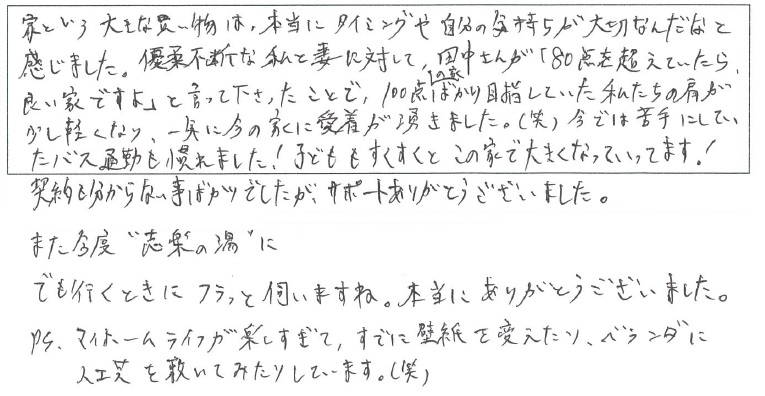 家という大きな買い物は、本当にタイミングや自分の気持ちが大切なんだなと
感じました。優柔不断な私と妻に対して、田中さんが「80点を超えていたら、
良い家ですよ」と言って下さったことで、100点の家ばかり目指していた私たちの肩が
少し軽くなり、一気に今の家に愛着が湧きました。(笑) 今では苦手にしてい
たバス通勤も慣れました！子どももすくすくとこの家で大きくなっていってます！
契約も分からない事ばかりでしたが、サポートありがとうございました。
また今度“志楽の湯”に
でも行くときにフラっと伺いますね。本当にありがとうございました。
PS、マイホームライフが楽しすぎて、すでに壁紙を変えたり、ベランダに
人工芝を敷いてみたりしています。(笑)